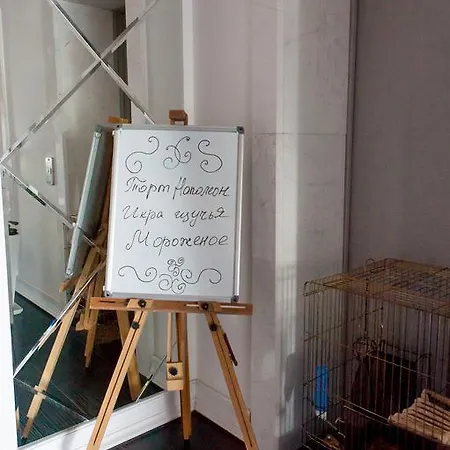 Торт Наполеон
Икра щучья
Мороженое